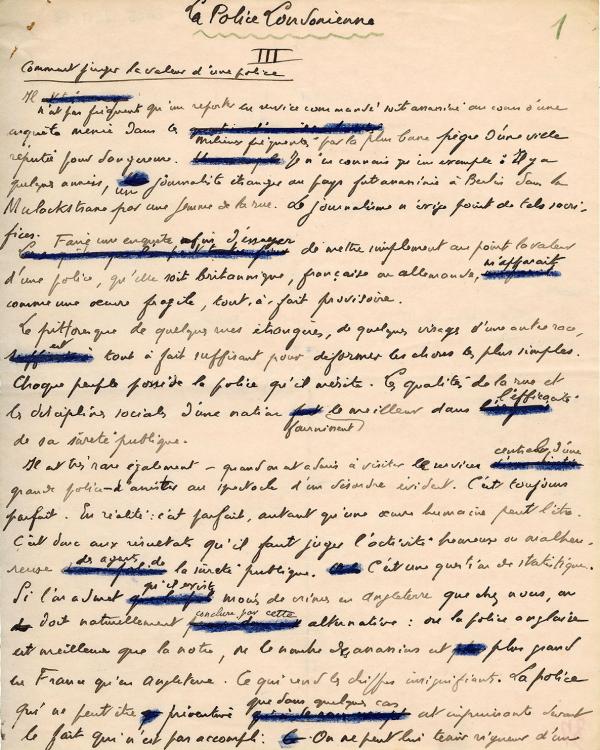 La Police Londonienne
1
III
Comment juger la valeur d'une police
Il
n'est pas fréquent qu'un reporter en service commandé soit assassiné au cours d'une
enquête menée dans les
milieux fréquentés par la plus basse pègre d'une ville
réputée pour dangereuse. Je n'en connais qu'un exemple : Il y a
quelques années, un journaliste étranger au pays fut assassiné à Berlin dans la
Mulackstrasse par une femme de la rue. Le journalisme n'exige point de tels sacri-
fices.
Faire une enquête afin d'essayer de mettre simplement au point la valeur
d'une police, qu'elle soit britannique, française ou allemande, m'apparaît
comme une œuvre fragile, tout à fait provisoire.
Le pittoresque de quelques rues étrangères, de quelques visages d'une autre race,
est tout à fait suffisant pour déformer les choses les plus simples.
Chaque peuple possède la police qu'il mérite. Les qualités de la rue et
les disciplines sociales d'une nation fournissent le meilleur dans l'effigie
de sa sûreté publique.
Il est très rare également – quand on est admis à visiter les services centraux d'une
grande police – d'assister au spectacle d'un désordre évident. C'est toujours
parfait. En réalité : c'est parfait, autant qu'une œuvre humaine peut l'être.
C'est donc aux résultats qu'il faut juger l'activité heureuse ou malheu-
reuse des agents de la sûreté publique. C'est une question de statistique.
Si l'on admet qu'il existe moins de crimes en Angleterre que chez nous, on
doit naturellement conclure par cette alternative : ou la police anglaise
est meilleure que la nôtre, ou le nombre des assassins est plus grand
en France qu'en Angleterre. Ce qui rend les chiffres insignifiants. La police
qui ne peut être préventive que dans quelques cas est impuissante devant
le fait qui n'est pas accompli. On ne peut lui tenir rigueur d'un